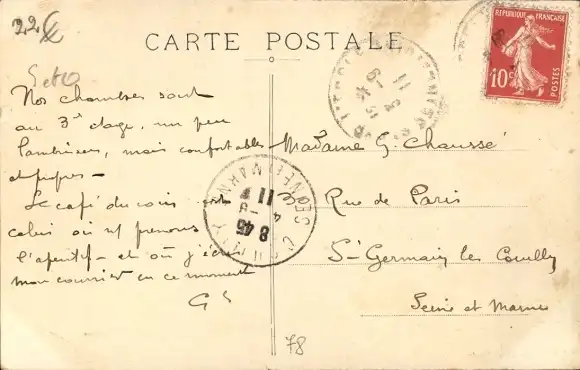 22
CARTE POSTALE
REPUBLIQUE FRANÇAISE
10c
POSTES
Nos chambres sont
au 3e étage, un peu
lambrisées, mais confortables
et propres –
Le café du coin est
celui où ns prenons
l'apéritif – et où j'écris
mon courrier en ce moment
G
Madame G. Chaussé
Rue de Paris
St Germain les Couilly
Seine et Marne
11
8 45
4 - 9
11
78